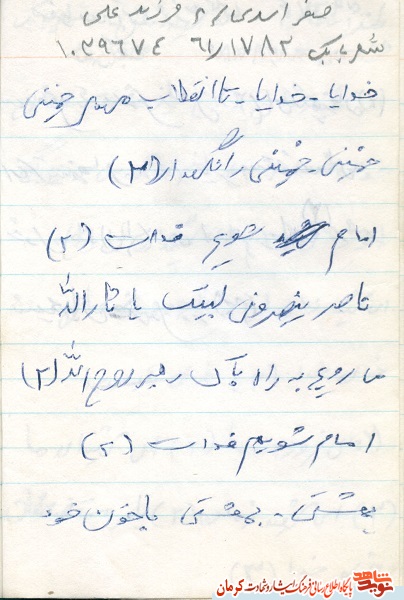 صفر اسدی فرزند علی
شهر بابک ۶۱/۱۷۸۲ ۱۰۳۹۶۷۴
خدایا - خدایا - تا انقلاب مهدی خمینی
خمینی - خمینی را نگهدار (۳)
امام شویم فدایت (۲)
ناصر ینصرونی لبیک یا ثارالله
ما رویم به راه پاک رهبر روح الله (۲)
امام شویم فدایت (۲)
بهشتی - بهشتی با خون خود
شاهد نوید
پایگاه اطلاع رسانی فرهنگ ایثار و شهادت کرمان